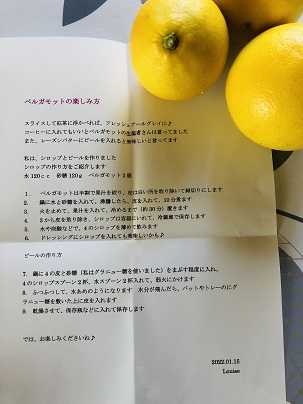 ベルガモットの楽しみ方
スライスして紅茶に浮かべれば、フレッシュアールグレイに♪
コーヒーに入れてもいいとベルガモットの生産者さんは言ってました
また、レーズンバターにピールを入れると美味しいと言ってます
私は、シロップとピールを作りました
シロップの作り方をご紹介します
水120cc 砂糖120g ベルガモット2個
1. ベルガモットは半割で果汁を絞り、皮は白い所を取り除いて細切りにします
2. 鍋に水と砂糖を入れて、沸騰したら、皮を入れて、10分煮ます
3. 火を止めて、果汁を入れて、冷めるまで(約30分)置きます
4. 3から皮を取り除き、シロップは容器にいれて、冷蔵庫で保存します
5. 水や炭酸などで、4のシロップを薄めて飲みます
6. ドレッシングにシロップを入れても美味しいかも♪
ピールの作り方
7. 鍋に4の皮と砂糖(私はグラニュー糖を使いました)をまぶす程度に入れ、
4のシロップスプーン2杯、水スプーン2杯入れて、弱火にかけます
8. ふつふつして、水あめのようになります 水分が飛んだら、バットやトレーのにグ
ラニュー糖を敷いた上に皮を入れます
9. 乾燥させて、保存瓶などに入れて保存します
では、お楽しみくださいね♪
2022.01.15
Louise